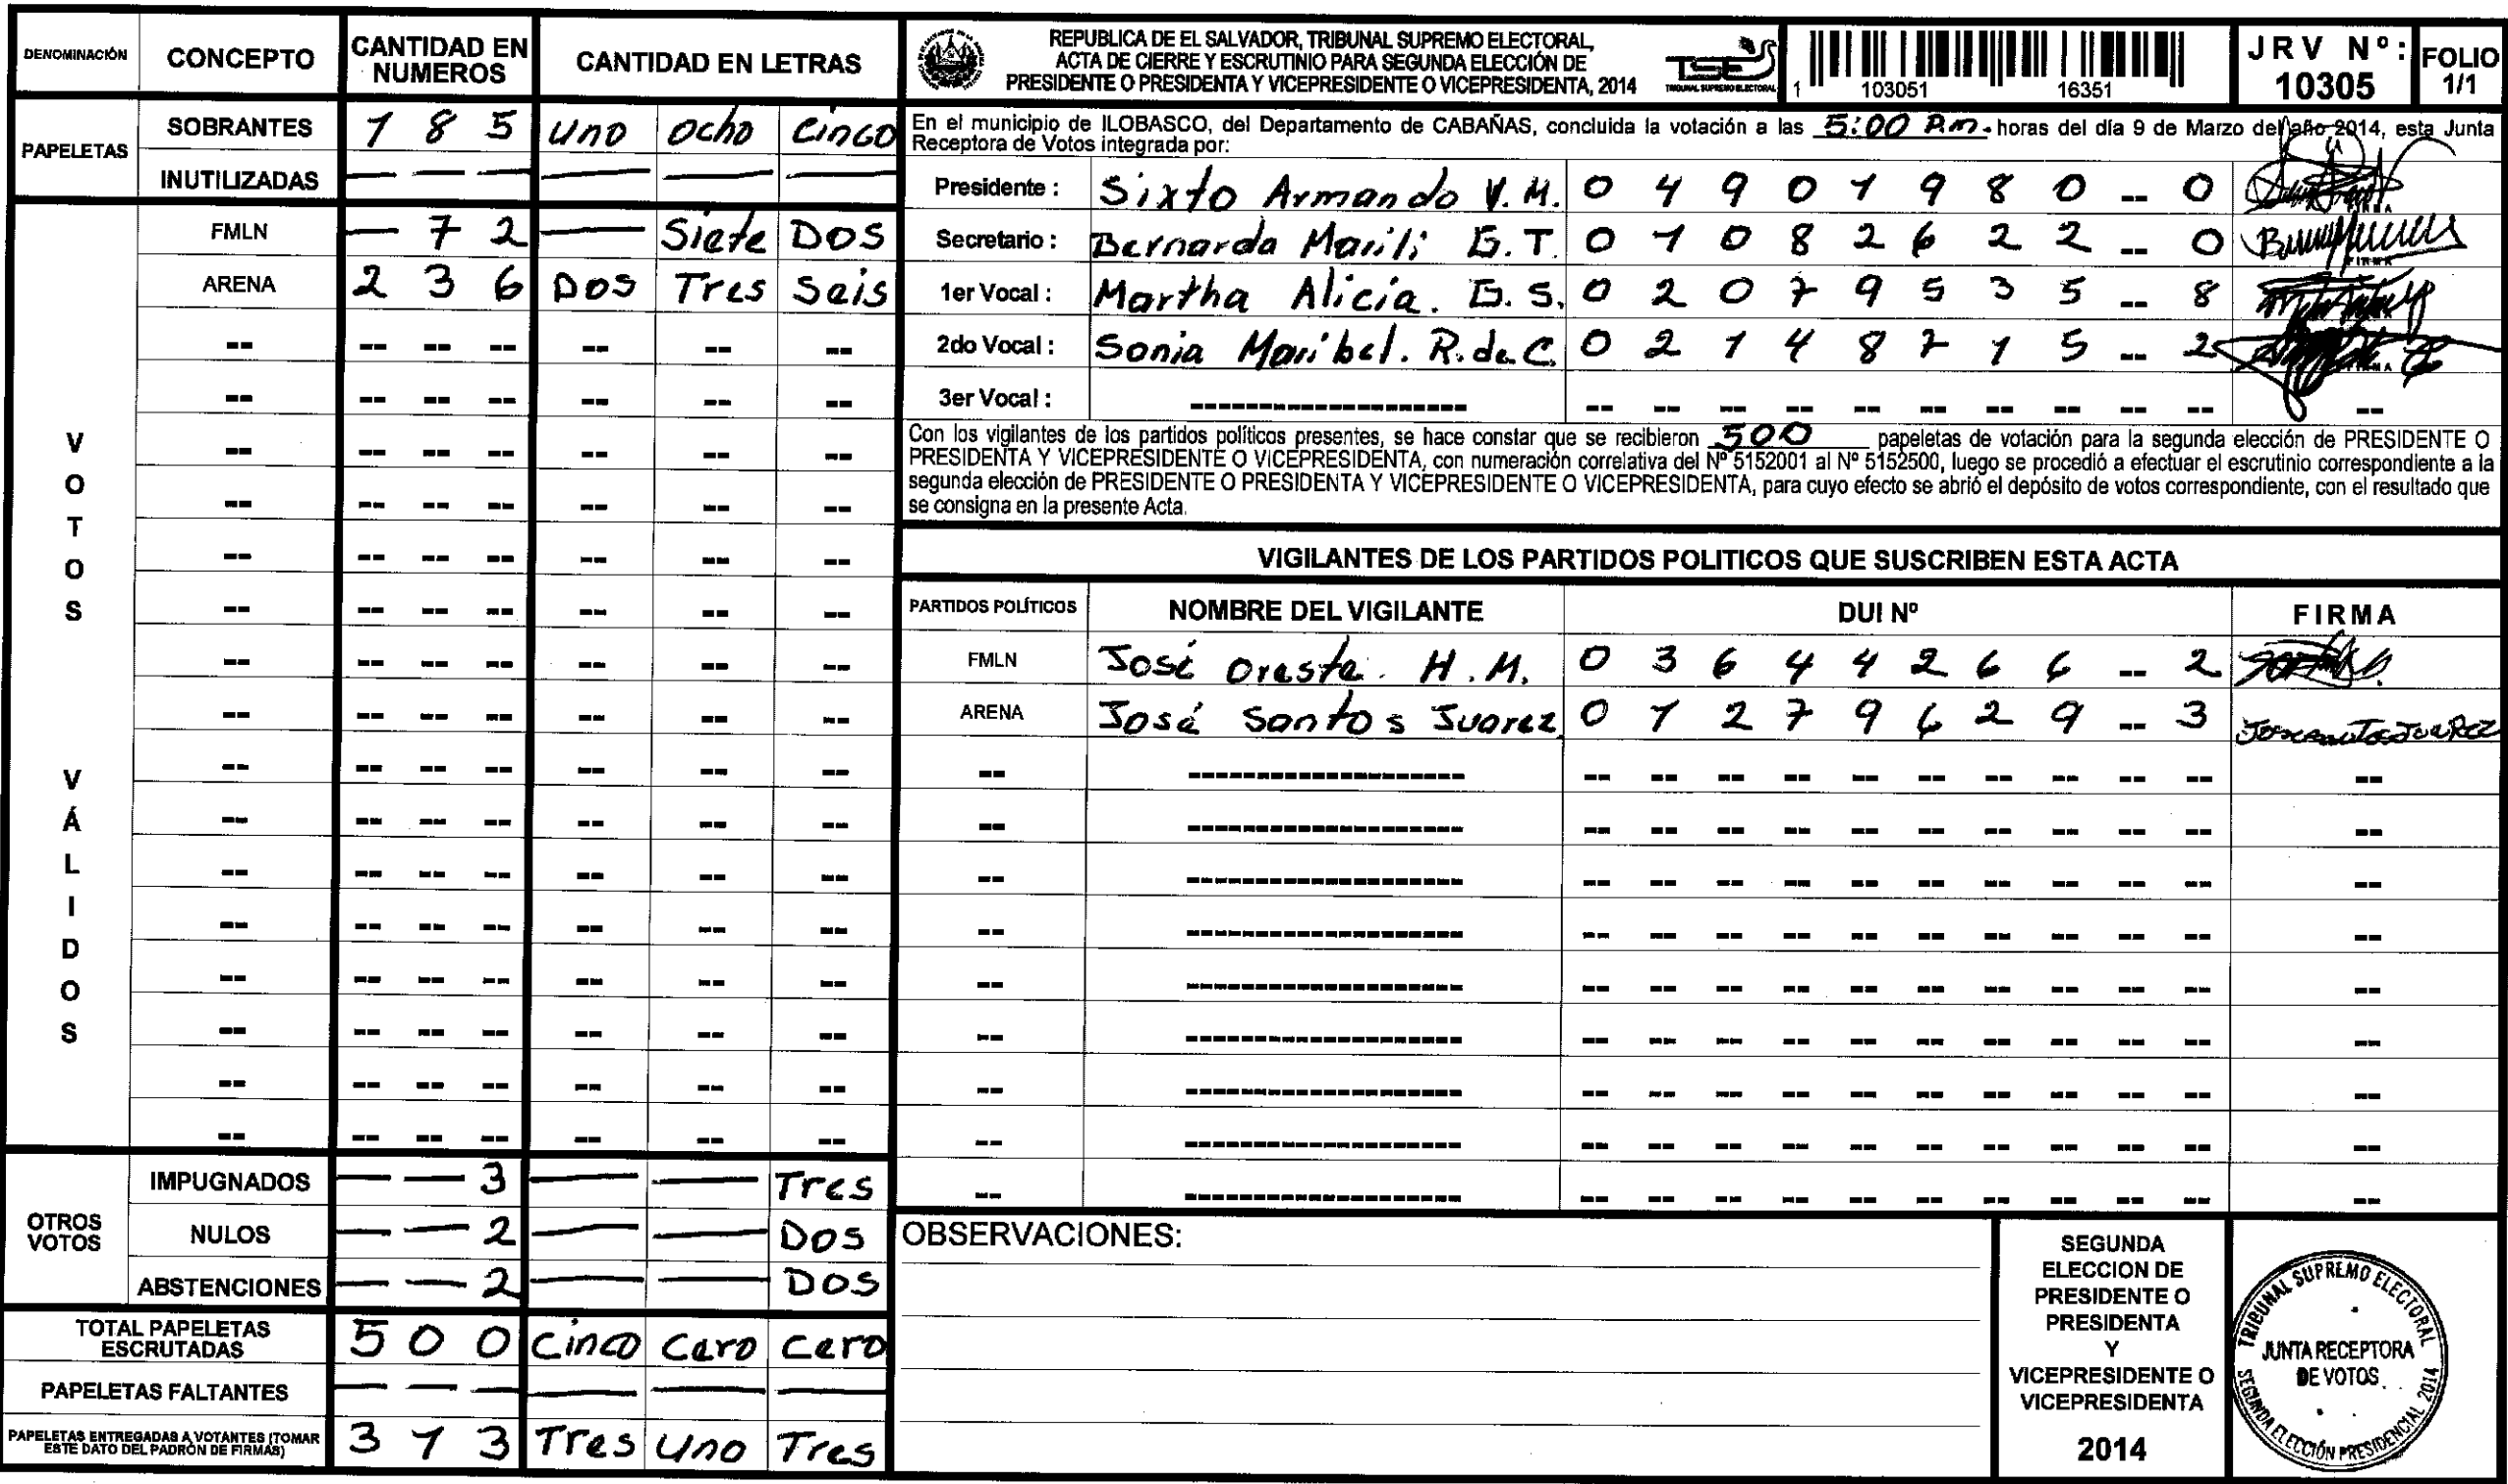 DENOMINACIÓN CONCEPTO CANTIDAD EN NUMEROS CANTIDAD EN LETRAS
PAPELETAS
SOBRANTES 1 8 5 uno ocho cinco
INUTILIZADAS — — — — — —
VOTOS VÁLIDOS
FMLN — 7 2 — Siete Dos
ARENA 2 3 6 Dos Tres Seis
OTROS VOTOS
IMPUGNADOS — — 3 — — Tres
NULOS — — 2 — — Dos
ABSTENCIONES — — 2 — — Dos
TOTAL PAPELETAS ESCRUTADAS 5 0 0 Cinco Cero Cero
PAPELETAS FALTANTES — — — — — —
PAPELETAS ENTREGADAS A VOTANTES (TOMAR ESTE DATO DEL PADRÓN DE FIRMAS) 3 1 3 Tres Uno Tres
REPUBLICA DE EL SALVADOR, TRIBUNAL SUPREMO ELECTORAL,
ACTA DE CIERRE Y ESCRUTINIO PARA SEGUNDA ELECCIÓN DE
PRESIDENTE O PRESIDENTA Y VICEPRESIDENTE O VICEPRESIDENTA, 2014
TSE
TRIBUNAL SUPREMO ELECTORAL
1 103051 16351
JRV Nº: 10305
FOLIO 1/1
En el municipio de ILOBASCO, del Departamento de CABAÑAS, concluida la votación a las 5:00 P.m. horas del día 9 de Marzo del año 2014, esta Junta
Receptora de Votos integrada por:
Presidente : Sixto Armando V. M. 0 4 9 0 1 9 8 0 -- 0
Secretario : Bernarda Marili G. T. 0 1 0 8 2 6 2 2 -- 0
1er Vocal : Martha Alicia. G. S. 0 2 0 7 9 5 3 5 -- 8
2do Vocal : Sonia Maribel. R. de C. 0 2 1 4 8 7 1 5 -- 2
3er Vocal :
Con los vigilantes de los partidos políticos presentes, se hace constar que se recibieron 500 papeletas de votación para la segunda elección de PRESIDENTE O
PRESIDENTA Y VICEPRESIDENTE O VICEPRESIDENTA, con numeración correlativa del Nº 5152001 al Nº 5152500, luego se procedió a efectuar el escrutinio correspondiente a la
segunda elección de PRESIDENTE O PRESIDENTA Y VICEPRESIDENTE O VICEPRESIDENTA, para cuyo efecto se abrió el depósito de votos correspondiente, con el resultado que
se consigna en la presente Acta.
VIGILANTES DE LOS PARTIDOS POLITICOS QUE SUSCRIBEN ESTA ACTA
PARTIDOS POLÍTICOS NOMBRE DEL VIGILANTE DUI Nº FIRMA
FMLN José Oreste. H. M. 0 3 6 4 4 2 6 6 -- 2
ARENA José Santos Juarez 0 1 2 7 9 6 2 9 -- 3
OBSERVACIONES:
SEGUNDA
ELECCION DE
PRESIDENTE O
PRESIDENTA
Y
VICEPRESIDENTE O
VICEPRESIDENTA
2014
TRIBUNAL SUPREMO ELECTORAL
JUNTA RECEPTORA
DE VOTOS
SEGUNDA ELECCIÓN PRESIDENCIAL 2014